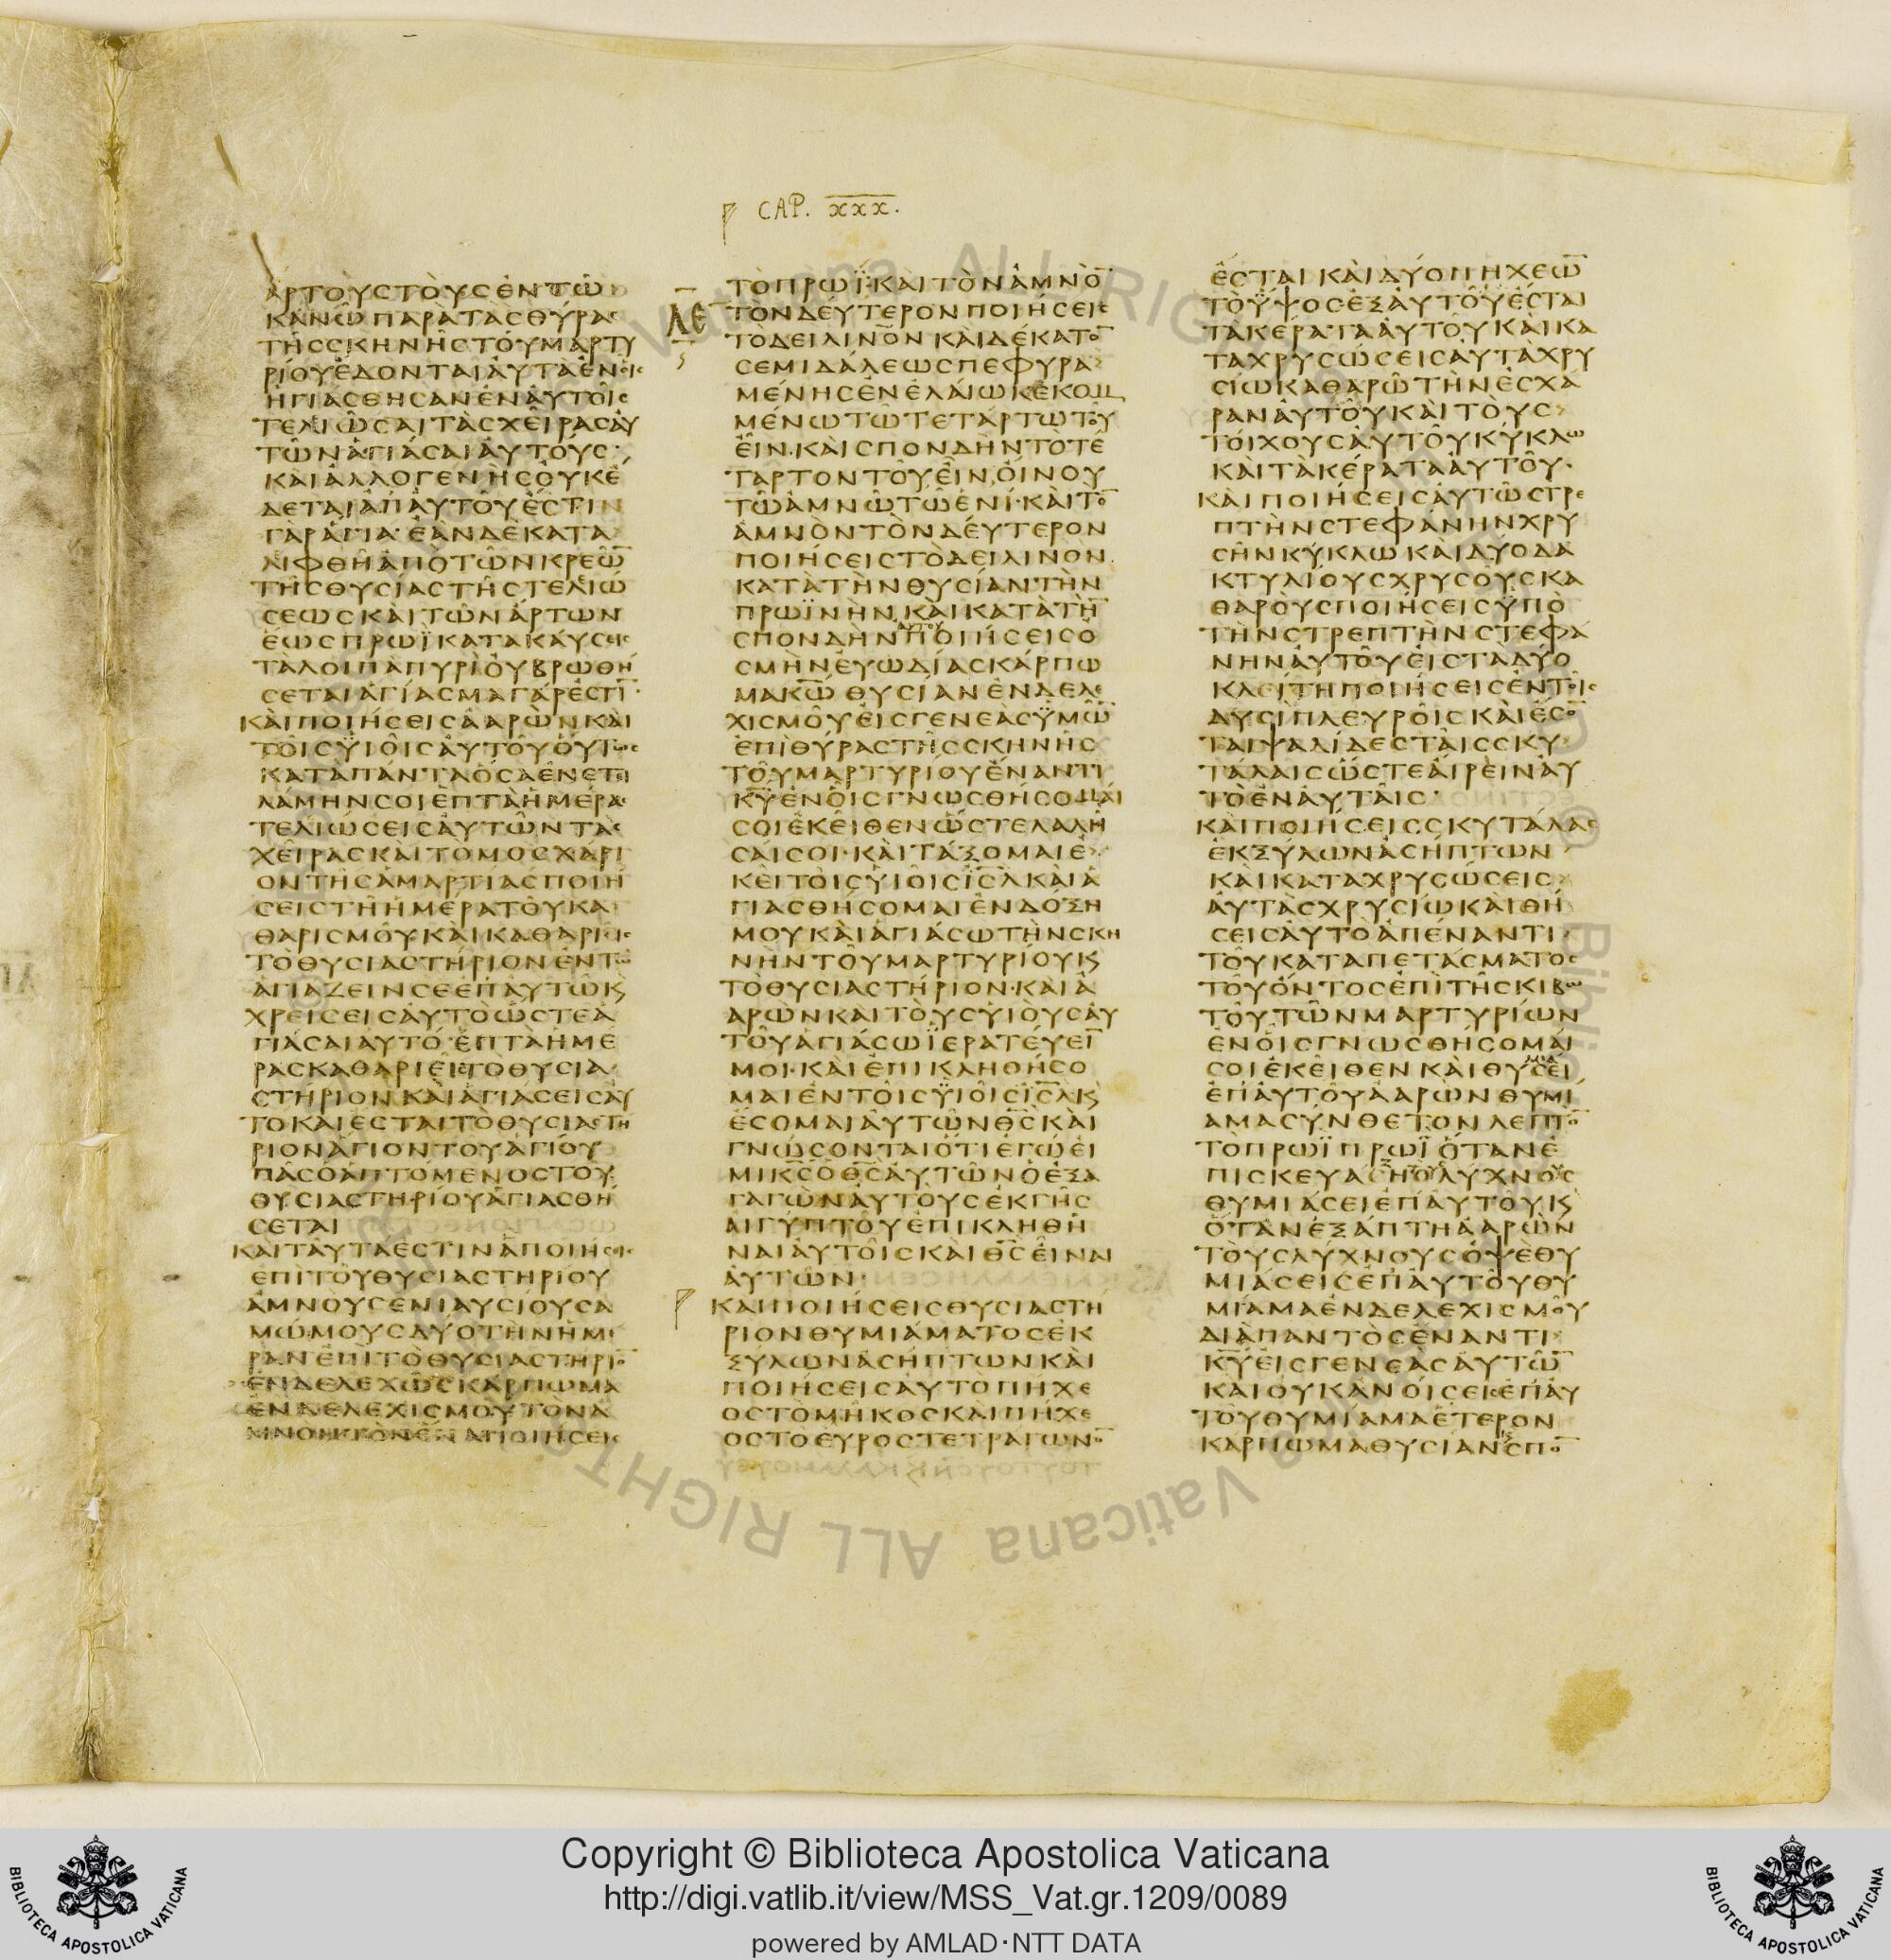 CAP. xxx.
ἄρτους τοὺς ἐν τῶ
κανῶ παρὰ τὰς θύρας
τῆς σκηνῆς τοῦ μαρτυ
ρίου ἔδονται αὐτὰ ἐν οἷς
ἡγιάσθησαν ἐν αὐτοῖς
τελιῶσαι τὰς χεῖρας αὐ
τῶν ἁγιάσαι αὐτούς·
καὶ ἀλλογενὴς οὐκ ἔ
δεται ἀπ αὐτοῦ ἔστιν
γὰρ ἅγια· ἐὰν δὲ κατα
λιφθῆ ἀπὸ τῶν κρεῶ̅
τῆς θυσίας τῆς τελιώ
σεως καὶ τῶν ἄρτων
ἕως πρωῒ κατακαύσεις
τὰ λοιπὰ πυρί οὐ βρωθή
σεται ἁγίασμα γάρ ἐστι̅·
καὶ ποιήσεις ἀαρὼν καὶ
τοῖς ϋἱοῖς αὐτοῦ οὕτως
κατὰ πάντα ὅσα ἐνετι
λάμην σοι ἑπτὰ ἡμέρας
τελιώσεις αὐτῶν τὰς
χεῖρας καὶ τὸ μοσχάρι
ον τῆς ἁμαρτίας ποιή
σεις τῆ ἡμέρα τοῦ κα
θαρισμοῦ· καὶ καθαριεῖς
τὸ θυσιαστήριον ἐν τῶ
ἁγιάζειν σε ἐπ αὐτῶ κ̀
χρείσεις αὐτὸ ὥστε ἁ
γιάσαι αὐτό· ἑπτὰ ἡμέ
ρας καθαριεῖς τὸ θυσια
στήριον καὶ ἁγιάσεις αὐ
τὸ καὶ ἔσται τὸ θυσιαστή
ριον ἅγιον τοῦ ἁγίου
πᾶς ὁ ἁπτόμενος τοῦ
θυσιαστηρίου ἁγιασθή
σεται
καὶ ταῦτά ἐστιν ἃ ποιήσεις
ἐπὶ τοῦ θυσιαστηρίου
ἀμνοὺς ἐνιαυσίους ἀ
μώμους δύο τὴν ἡμέ
ραν ἐπὶ τὸ θυσιαστήριο̅
ἐνδελεχῶς κάρπωμα
ἐνδελεχισμοῦ τὸν ἀ
μνὸν τὸν ἕνα ποιήσεις
τὸ πρωΐ· καὶ τὸν ἀμνὸ̅
ΛΕ̅ τὸν δεύτερον ποιήσεις
τὸ δειλινόν καὶ δέκατο̅
σεμιδάλεως πεφυρα
μένης ἐν ἐλαίω κεκομ
μένω τῶ τετάρτω τοῦ
εἲν· καὶ σπονδὴν τὸ τέ
ταρτον τοῦ εἲν οἴνου
τῶ ἀμνῶ τῶ ἑνί· καὶ το̅
ἀμνὸν τὸν δεύτερον
ποιήσεις τὸ δειλινόν
κατὰ τὴν θυσίαν τὴν
πρωϊνὴν καὶ κατὰ τὴ̅
σπονδὴν αὐτοῦ ποιήσεις ὀ
σμὴν εὐωδίας κάρπω
μα κ̅ω̅ θυσίαν ἐνδελε
χισμοῦ εἰς γενεὰς ϋμῶ̅
ἐπὶ θύρας τῆς σκηνῆς
τοῦ μαρτυρίου ἔναντι
κ̅υ̅ ἐν οἷς γνωσθήσομαί
σοι ἐκεῖθεν ὥστε λαλῆ
σαί σοι· καὶ τάξομαι ἐ
κεῖ τοῖς υἱοῖς ι̅σ̅λ̅ καὶ ἁ
γιασθήσομαι ἐν δόξη
μου καὶ ἁγιάσω τὴν σκη
νὴν τοῦ μαρτυρίου κ̀
τὸ θυσιαστήριον· καὶ ἀ
αρὼν καὶ τοὺς υἱοὺς αὐ
τοῦ ἁγιάσω ϊερατεύει̅
μοι· καὶ ἐπικληθήσο
μαι ἐν τοῖς ϋἱοῖς ι̅σ̅λ̅ κ̀
ἔσομαι αὐτῶν θ̅ς̅ καὶ
γνώσονται ὅτι ἐγώ εἰ
μι κ̅ς̅ ὁ θ̅ς̅ αὐτῶν ὁ ἐξα
γαγὼν αὐτοὺς ἐκ γῆς
αἰγύπτου ἐπικληθῆ
ναι αὐτοῖς καὶ θ̅ς̅ εἶναι
αὐτῶν
καὶ ποιήσεις θυσιαστή
ριον θυμιάματος ἐκ
ξύλων ἀσήπτων καὶ
ποιήσεις αὐτὸ πήχε
ος τὸ μῆκος καὶ πήχε
ος τὸ εὖρος τετράγωνο̅
ἔσται καὶ δύο πήχεω̅
τὸ ϋψος ἐξ αὐτοῦ ἔσται
τὰ κέρατα αὐτοῦ καὶ κα
ταχρυσώσεις αὐτὰ χρυ
σίω καθαρῶ τὴν ἐσχά
ραν αὐτοῦ καὶ τοὺς
τοίχους αὐτοῦ κύκλω
καὶ τὰ κέρατα αὐτοῦ·
καὶ ποιήσεις αὐτῶ στρε
πτὴν στεφάνην χρυ
σῆν κύκλω καὶ δύο δα
κτυλίους χρυσοῦς κα
θαροὺς ποιήσεις ϋπὸ
τὴν στρεπτὴν στεφά
νην αὐτοῦ εἰς τὰ δύο
κλείτη ποιήσεις ἐν τοῖς
δυσὶ πλευροῖς καὶ ἔσο̅
ται ψαλίδες ταῖς σκυ
τάλαις ὥστε αἴρειν αὐ
τὸ ἐν αὐταῖς
καὶ ποιήσεις σκυτάλας
ἐκ ξύλων ἀσήπτων
καὶ καταχρυσώσεις
αὐτὰς χρυσίω καὶ θή
σεις αὐτὸ ἀπέναντι
τοῦ καταπετάσματος
τοῦ ὄντος ἐπὶ τῆς κιβω
τοῦ τῶν μαρτυρίων
ἐν οἷς γνωσθήσομαί
σοι ἐκεῖθεν καὶ θυμιάσει
ἐπ αὐτοῦ ἀαρὼν θυμί
αμα σύνθετον λεπτο̅
τὸ πρωῒ πρωῒ ὅταν ἐ
πισκευάζη τοὺς λύχνους
θυμιάσει ἐπ αὐτοῦ κ̀
ὅταν ἐξάπτη ἀαρὼν
τοὺς λύχνους ὀψὲ θυ
μιάσει ἐπ αὐτοῦ θυ
μίαμα ἐνδελεχισμοῦ
διὰ παντὸς ἔναντι
κ̅υ̅ εἰς γενεὰς αὐτῶ̅
καὶ οὐκ ἀνοίσεις ἐπ αὐ
τοῦ θυμίαμα ἕτερον
κάρπωμα θυσίαν κ̀ σπο̅
Copyright © Biblioteca Apostolica Vaticana
http://digi.vatlib.it/view/MSS_Vat.gr.1209/0089
powered by AMLAD·NTT DATA
BIBLIOTECA APOSTOLICA VATICANA
BIBLIOTECA APOSTOLICA VATICANA